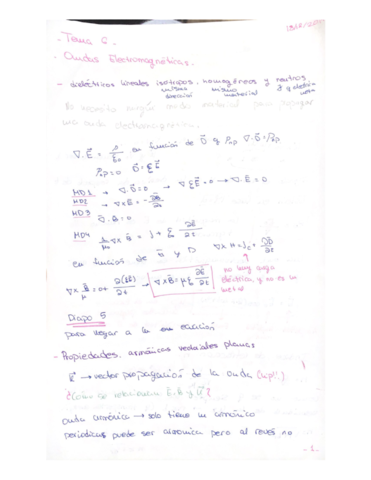 - Tema 6.
- Ondas Electromagnéticas.
- dieléctricos lineales isótropos, homogéneos y neutros
mismo mismo
dirección material
No necesita ningún medio material para propagar
una onda electromagnética.
∇·E⃗ = ρ/ε₀ en función de D⃗ y ρₙₚ ∇·D⃗ = ρₙₚ
ρₙₚ=0 D⃗ = εE⃗
MD1 → ∇·D⃗=0 → ∇εE⃗=0 → ∇·E⃗ = 0
MD2 → ∇×E⃗ = -∂B⃗/∂t
MD3 ∇·B⃗ = 0
MD4 ∇×B⃗ = j + ε₀ ∂E⃗/∂t
en función de B⃗ y D ∇×H = j + ∂D⃗/∂t
∇×B⃗/μ = 0 + ∂(εE⃗)/∂t → ∇×B⃗ = με ∂E⃗/∂t
no hay carga
eléctrica, y no es un
metal
Diapo 5
para llegar a la ecuación
- Propiedades armónicas vectoriales planas
K⃗ → vector propagación de la onda (up!!)
¿Cómo se relacionan E⃗, B⃗ y
onda armónica → solo tiene un armónico
periódicas puede ser armónica pero al revés no
- 1 -